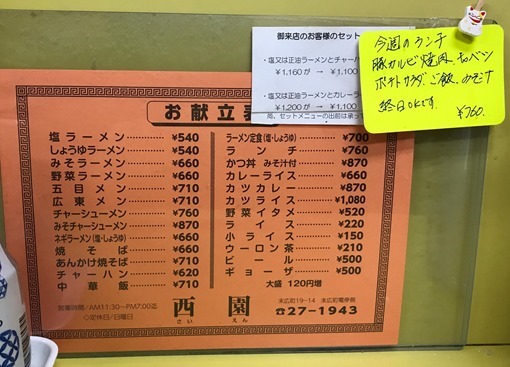 御来店のお客様のセット
・塩又は正油ラーメンとチャーハ
¥1,160が → ¥1,100
・塩又は正油ラーメンとカレーラ
¥1,200が → ¥1,100
尚、セットメニューの出前は承って
今週のランチ
豚カルビ焼肉、キャベツ
ポテトサラダ、ご飯、みそ汁
終日OKです。
¥760.
お献立表
塩ラーメン ¥540
しょうゆラーメン ¥540
みそラーメン ¥660
野菜ラーメン ¥660
五目メン ¥710
広東メン ¥710
チャーシューメン ¥760
みそチャーシュー ¥870
ネギラーメン(塩・しょうゆ) ¥660
焼そば ¥660
あんかけ焼そば ¥710
チャーハン ¥620
中華飯 ¥710
ラーメン定食(塩・しょうゆ) ¥700
ランチ ¥760
かつ丼 みそ汁付 ¥870
カレーライス ¥660
カツカレー ¥870
カツライス ¥1,080
野菜イタメ ¥520
ライス ¥220
小ライス ¥150
ウーロン茶 ¥210
ビール ¥500
ギョーザ ¥500
大盛 120円増
営業時間/AM11:30~PM7:00迄
◇定休日/日曜日
西園
さい えん
末広町19-14 末広町電停前
☎27-1943